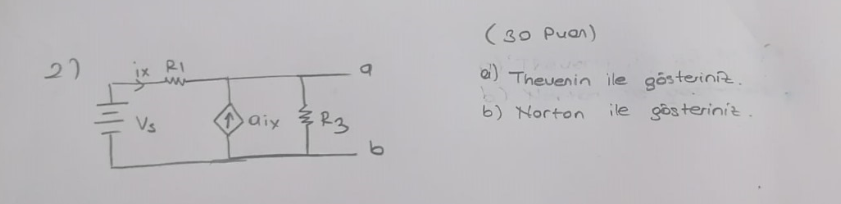 2)
ix R1
Vs
aix
R3
a
b
(30 Puan)
a) Thevenin ile gösteriniz.
b) Norton ile gösteriniz.